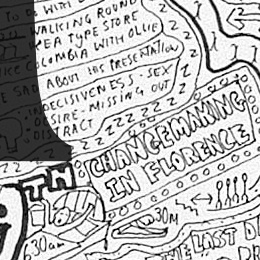 TO DO WITH
WALKING ROUND
TYPE STORE
COLOMBIA WITH OLLIE
ABOUT HIS PRESENTATION
INDECISIVENESS. SEX
DESIRE. MISSING OUT
DISTRACT
Z Z Z Z Z Z
CHANGEMAKING
IN FLORENCE
TH N
30M
6.30am
THE LAST